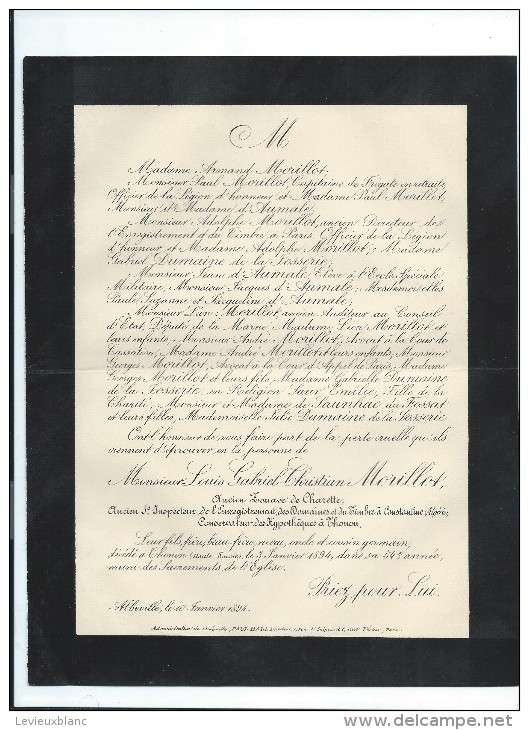 M
Madame Armand Morillot;
Monsieur Paul Morillot, Capitaine de Frégate en retraite,
Officier de la Légion d'honneur et Madame Paul Morillot,
Monsieur et Madame d'Aumale;
Monsieur Adolphe Morillot, ancien Directeur de
l'Enregistrement et du Timbre à Paris, Officier de la Légion
d'honneur et Madame Adolphe Morillot; Madame
Gabriel Dumaine de la Josserie;
Monsieur Jean d'Aumale, Elève à l'Ecole Spéciale
Militaire; Monsieur Jacques d'Aumale; Mesdemoiselles
Paule, Suzanne et Jacqueline d'Aumale;
Monsieur Léon Morillot, ancien Auditeur au Conseil
d'Etat, Député de la Marne, Madame Léon Morillot et
leurs enfants, Monsieur André Morillot, Avocat à la Cour de
Cassation, Madame André Morillot et leurs enfants, Monsieur
Georges Morillot, Avocat à la Cour d'Appel de Paris, Madame
Georges Morillot et leurs fils, Madame Gabrielle Dumaine
de la Josserie, en Religion Sœur Emilie, Fille de la
Charité, Monsieur et Madame de Saunhac du Fossat
et leurs filles, Mademoiselle Julie Dumaine de la Josserie
Ont l'honneur de vous faire part de la perte cruelle qu'ils
viennent d'éprouver en la personne de
Monsieur Louis Gabriel Christian Morillot,
Ancien Zouave de Charette,
Ancien Ss Inspecteur de l'Enregistrement, des Domaines et du Timbre à Constantine Algérie,
Conservateur des Hypothèques à Thonon,
Leur fils, frère, beau-frère, neveu, oncle et cousin germain,
décédé à Thonon (Haute Savoie), le 7 Janvier 1894, dans sa 44e année,
muni des Sacrements de l'Eglise.
Priez pour Lui.
Abbeville, le 10 Janvier 1894.
Paris.
Levieuxblanc
www.delcampe.net